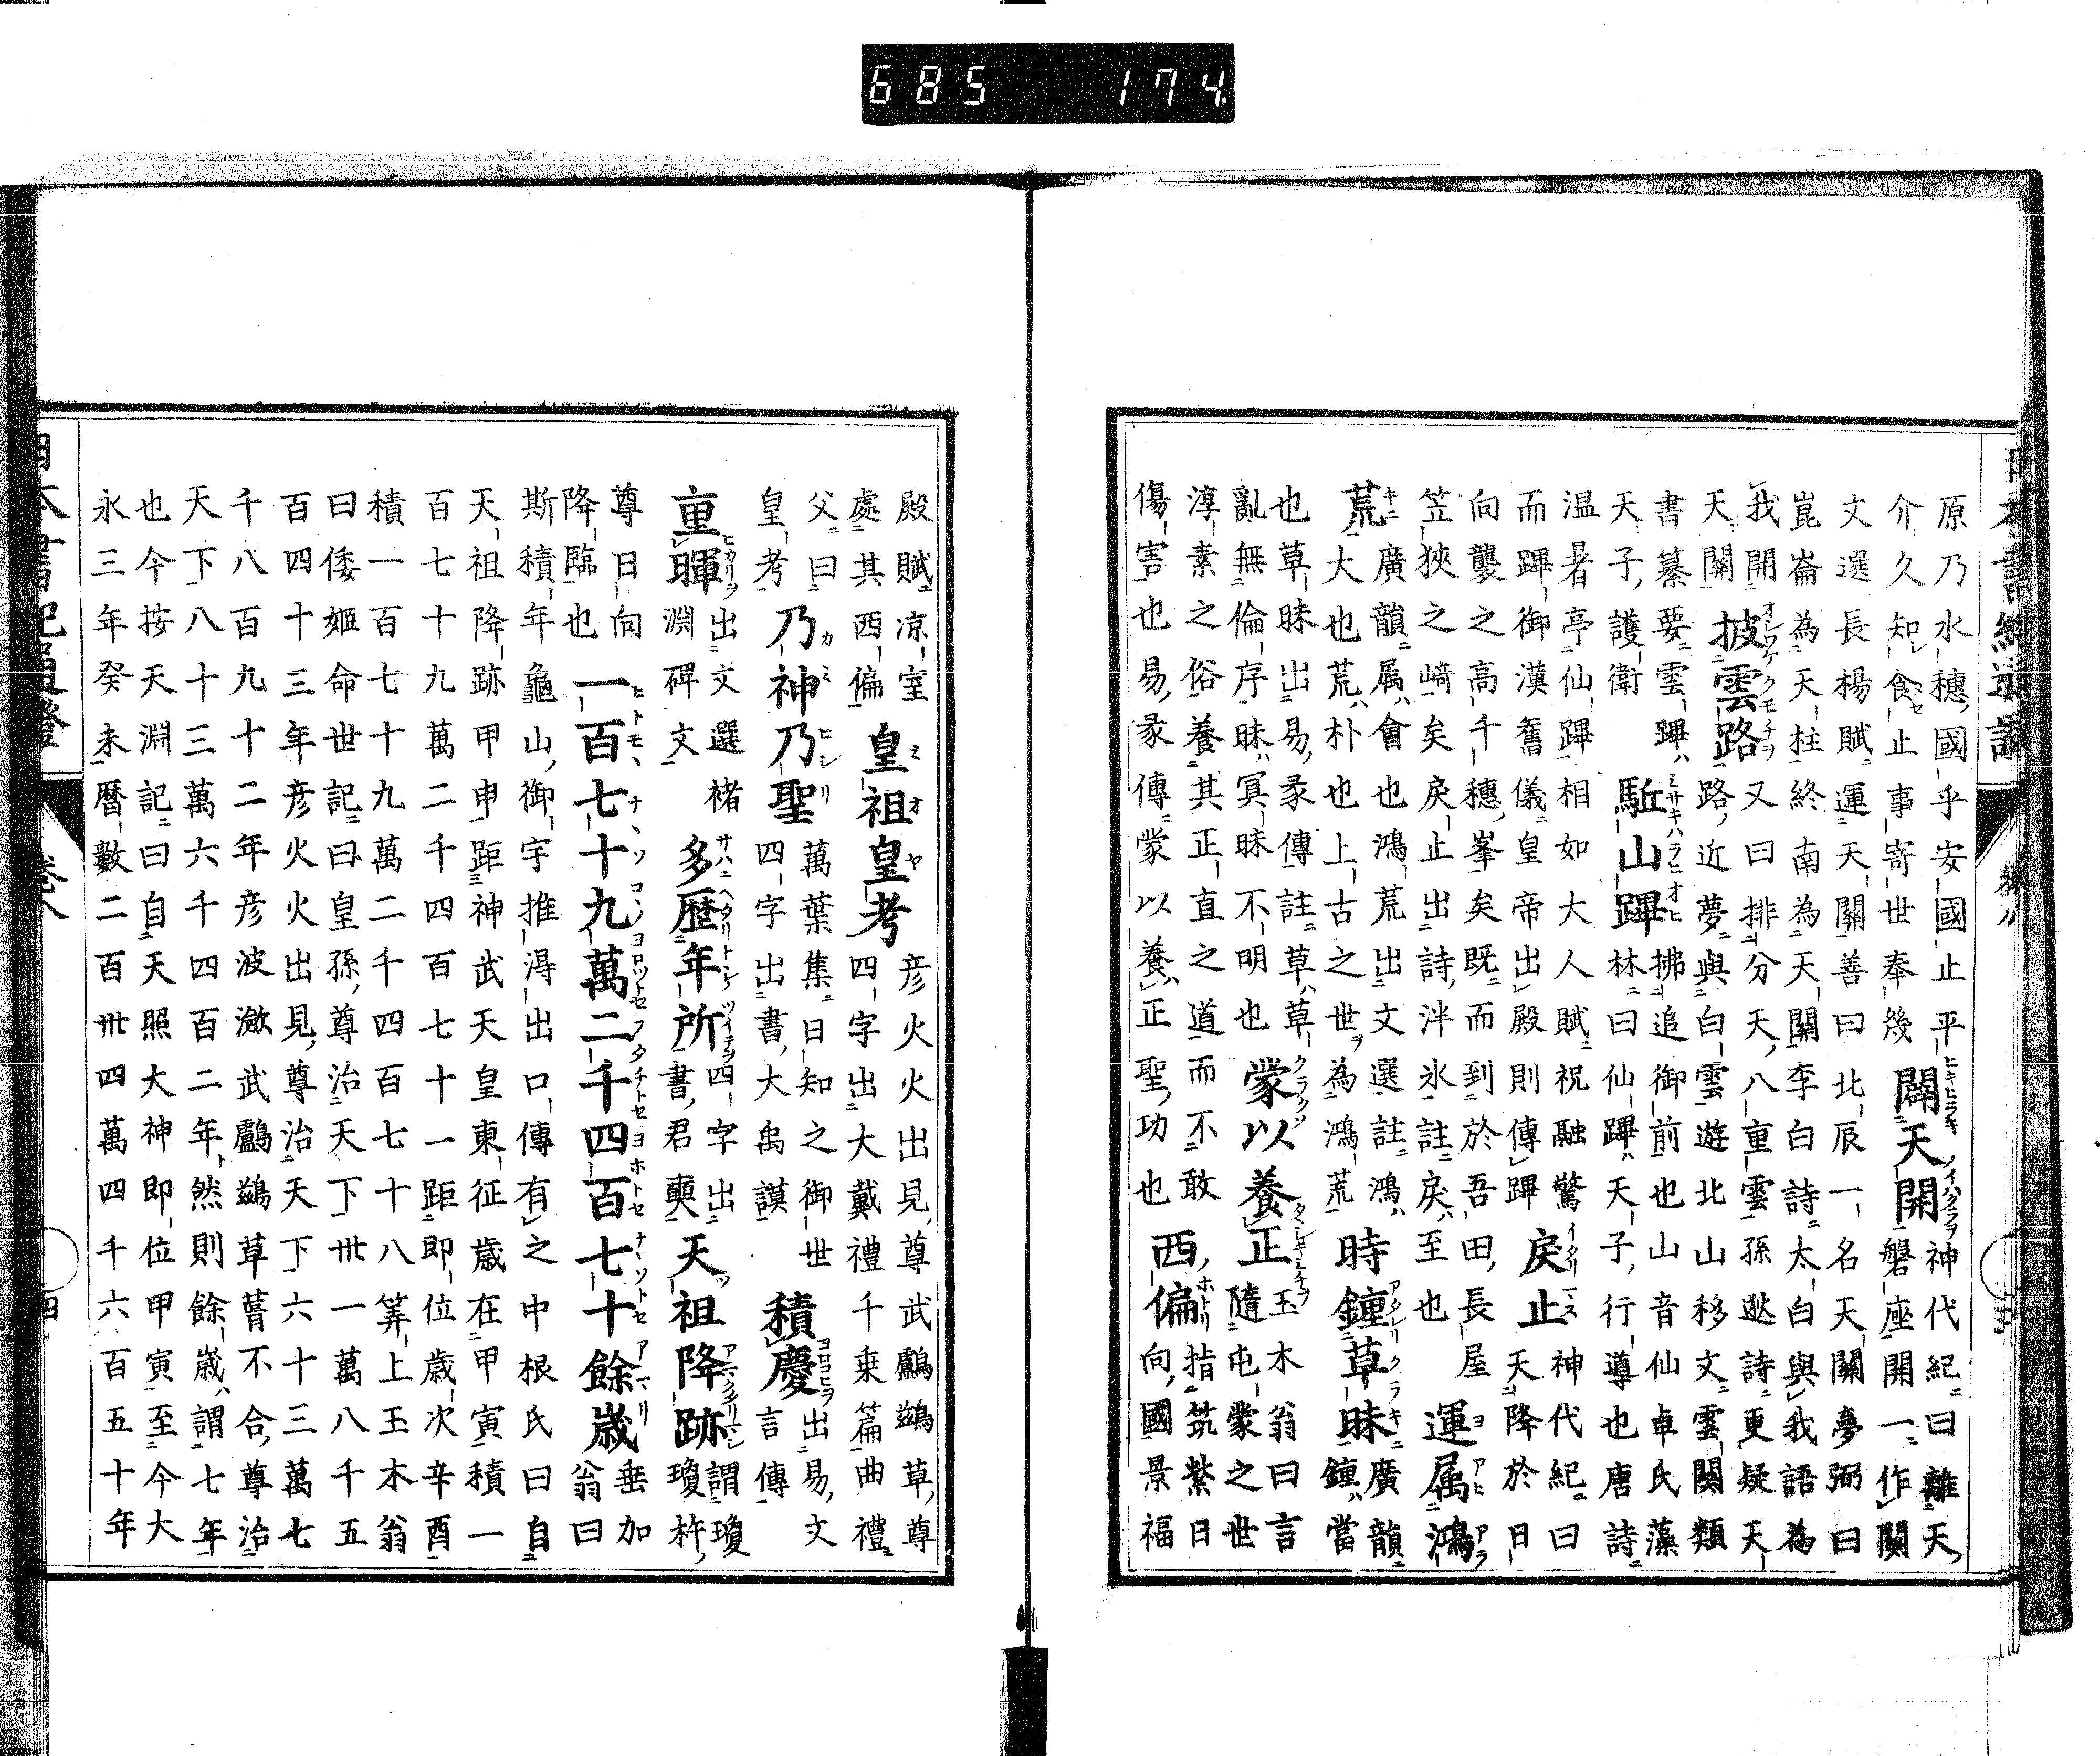 685 174
原乃水穗國乎安國止平
介久知食止事寄世奉幾
闢天開
神代紀曰離天
磐座開一作闢
文選長楊賦運天關善曰北辰一名天關夢弼曰
崑崙為天柱終南為天關李白詩太白與我語為
我開
天關
披雲路
又曰排分天八重雲孫逖詩更疑天
路近夢與白雲遊北山移文雲關類
書纂要雲蹕
天子護衛
駈山蹕
拂追御前也山音仙卓氏藻
林曰仙蹕天子行導也唐詩
温暑亭仙蹕相如大人賦祝融驚
而蹕御漢舊儀皇帝出殿則傳蹕
戾止
神代紀曰
天降於日
向襲之高千穗峯矣既而到於吾田長屋
笠狹之﨑矣戾止出詩泮水註戾至也
運属鴻
荒
廣韻属會也鴻荒出文選註鴻
大也荒朴也上古之世為鴻荒
時鐘草昧
廣韻
鐘當
也草昧出易彖傳註草草
亂無倫序昧冥昧不明也
蒙以養正
玉木翁曰言
隨屯蒙之世
淳素之俗養其正直之道而不敢
傷害也易彖傳蒙以養正聖功也
西偏
指筑紫日
向國景福
殿賦凉室
處其西偏
皇祖皇考
彦火火出見尊武鸕鷀草尊
四字出大戴禮千乗篇曲禮
父曰
皇考
乃神乃聖
萬葉集日知之御世
四字出書大禹謨
積慶
出易文
言傳
重暉
出文選褚
淵碑文
多歴年所
四字出
書君奭
天祖降跡
謂瓊
瓊杵
尊日向
降臨也
一百七十九萬二千四百七十餘歳
垂加
翁曰
斯積年龜山御宇推淂出口傳有之中根氏曰自
天祖降跡甲申距神武天皇東征歳在甲寅積一
百七十九萬二千四百七十一距即位歳次辛酉
積一百七十九萬二千四百七十八筭上玉木翁
曰倭姫命世記曰皇孫尊治天下卅一萬八千五
百四十三年彦火火出見尊治天下六十三萬七
千八百九十二年彦波瀲武鸕鷀草葺不合尊治
天下八十三萬六千四百二年然則餘歳謂七年
也今按天淵記曰自天照大神即位甲寅至今大
永三年癸未暦數二百卅四萬四千六百五十年
日本書紀通證 卷八 四